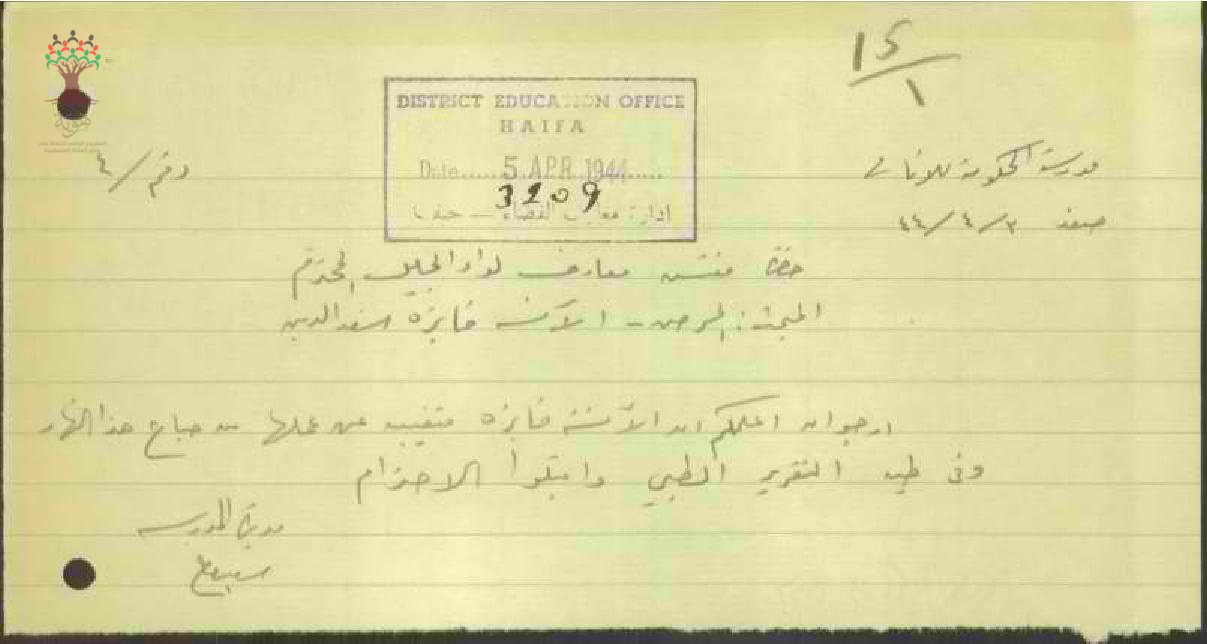 15/1
DISTRICT EDUCATION OFFICE
HAIFA
Date...... 5 APR 1944......
3209
ادارة معارف لقضاء — حيفا
مدرسة الحكومة للاناث
رقم / ٤
صفد ٣ / ٤ / ٤٤
مفتش معارف لواء الجليل المحترم
المبحث: المرض - الآنسة فايزة سعد الدين
ارجو ان اعلمكم ان الآنسة فايزه متغيبه عن عملها من صباح هذا النهار
وفي طيه التقرير الطبي واقبلوا الاحترام
مديرة المدرسه